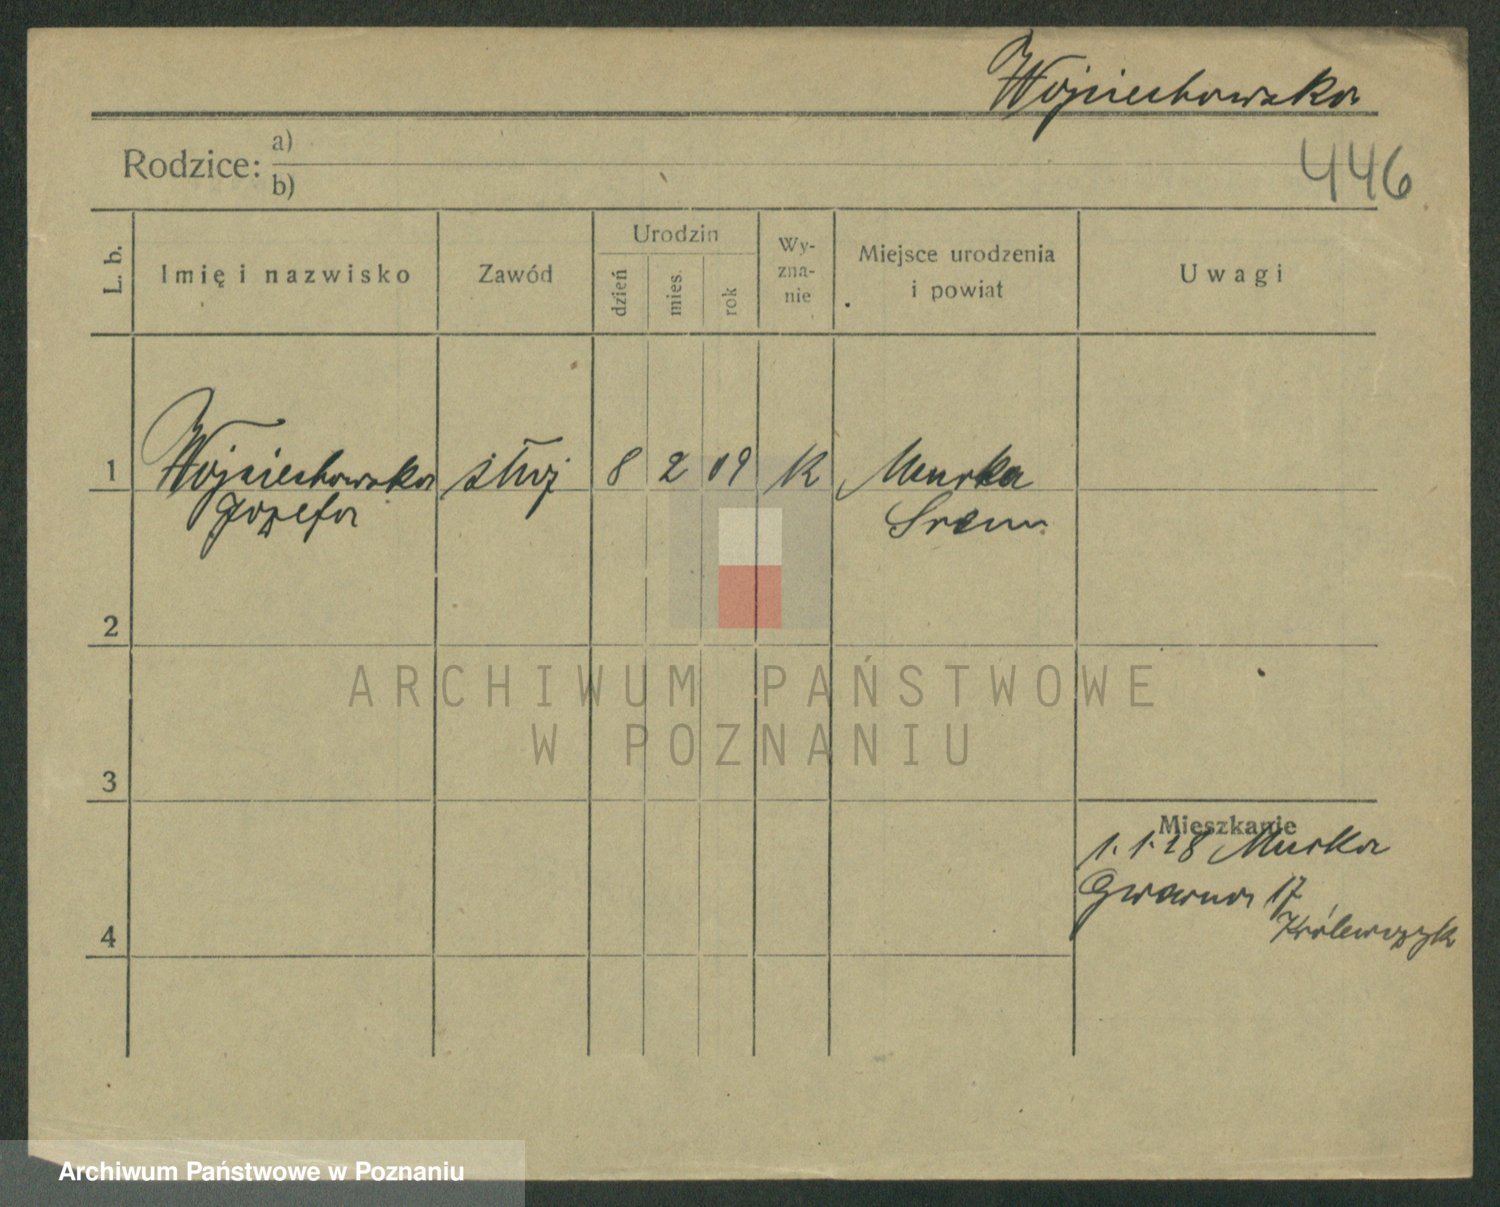 Wojciechowska
446
Rodzice: a)
b)
L. b.
Imię i nazwisko
Zawód
Urodzin
dzień
mies.
rok
Wy-
zna-
nie
Miejsce urodzenia
i powiat
Uwagi
1 Wojciechowska służ 8 2 09 K Murka
Józefa Śrem
2
3
4
Mieszkanie
1.1.28 Murka
Gwarna 17
Królewczyk
ARCHIWUM PAŃSTWOWE
W POZNANIU
Archiwum Państwowe w Poznaniu